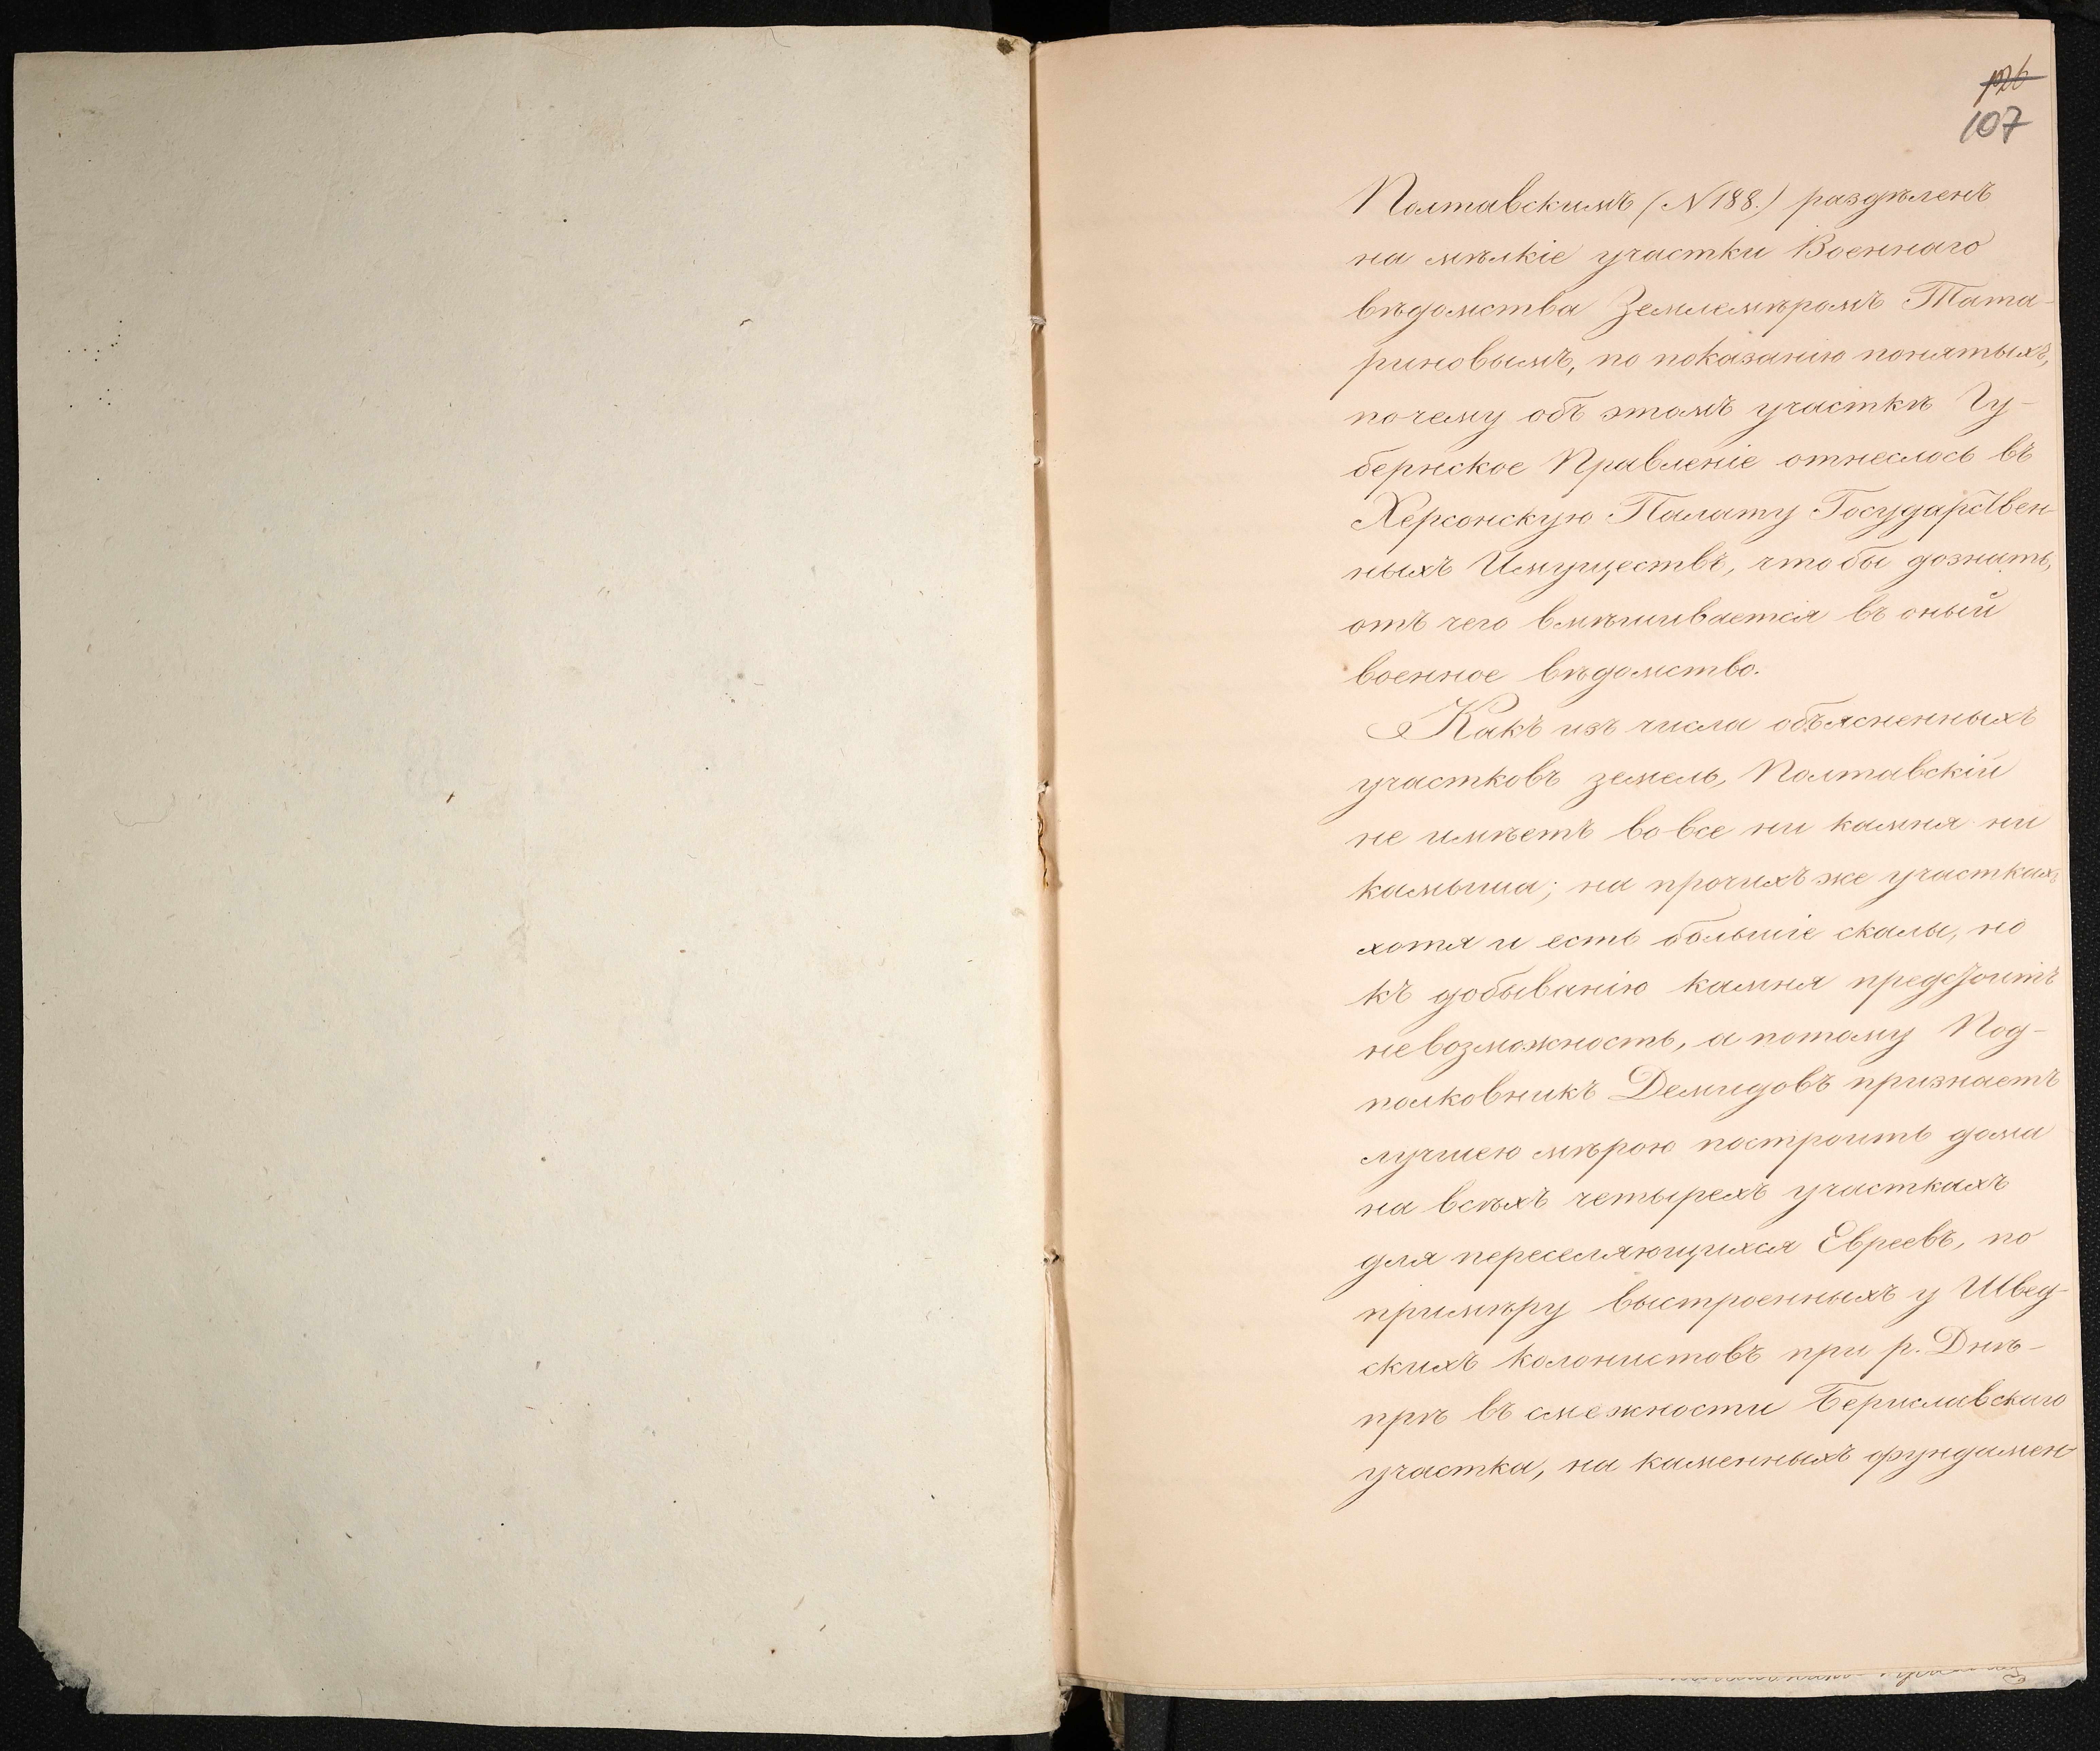 107
Полтавскимъ (N 188.) раздѣленъ
на мѣлкіе участки Военнаго
вѣдомства Землемѣромъ Тата-
риновымъ, по показанію понятыхъ,
почему объ этомъ участкѣ Гу-
бернское Правленіе отнеслось въ
Херсонскую Палату Государствен-
ныхъ Имуществъ, чтобы дознать,
отъ чего вмѣшивается въ оный
военное вѣдомство.
Какъ изъ числа объясненныхъ
участковъ земель, Полтавскій
не имѣетъ вовсе ни камня ни
камыша; на прочихъ же участкахъ
хотя и есть большіе скалы, но
къ добыванію камня предстоитъ
невозможность, а потому Под-
полковникъ Демидовъ признаетъ
лучшею мѣрою построить дома
на всѣхъ четырехъ участкахъ
для переселяющихся Евреевъ, по
примѣру выстроенныхъ у Швед-
скихъ колонистовъ при р. Днѣ-
прѣ въ смежности Бериславскаго
участка, на каменныхъ фундамен-